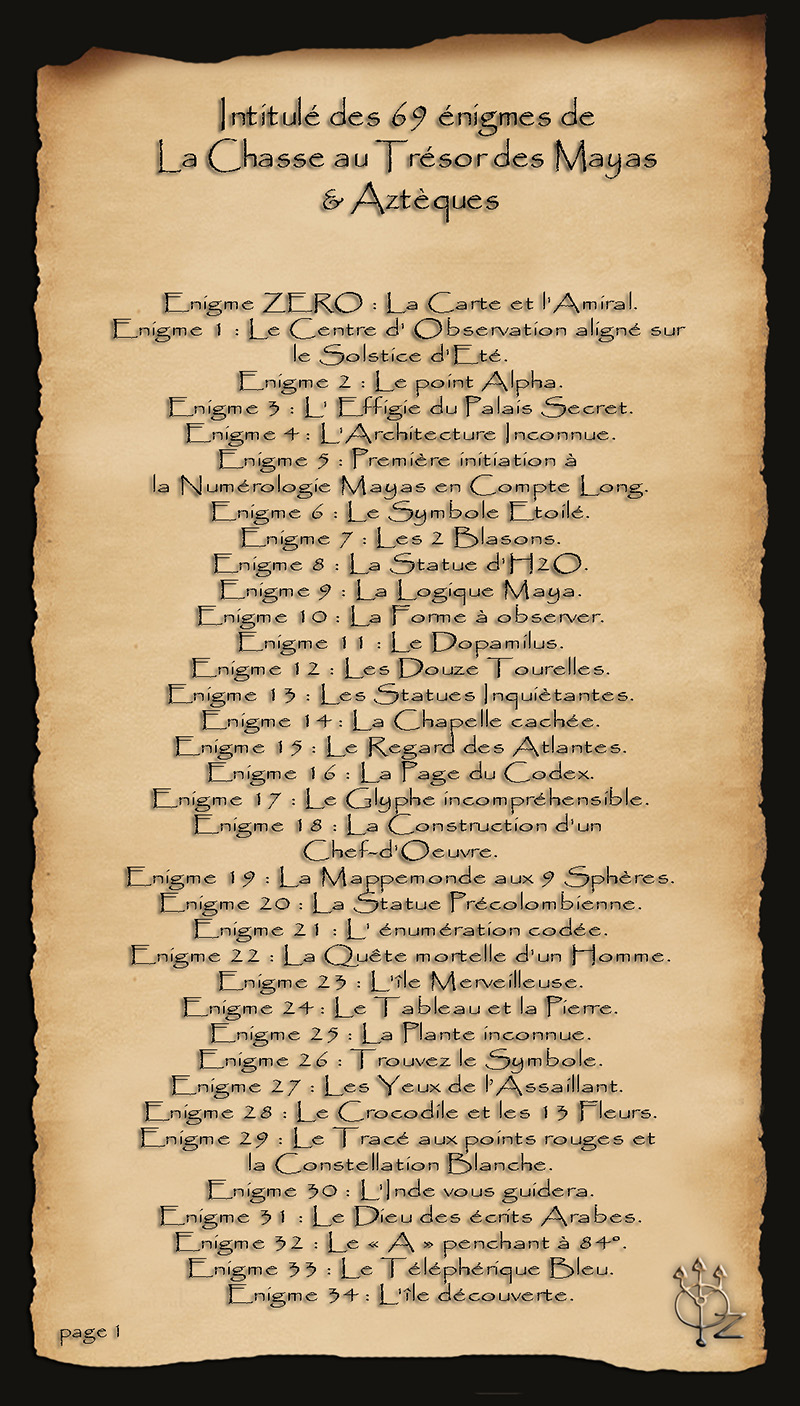 Intitulé des 69 énigmes de
La Chasse au Trésor des Mayas
& Aztèques
Enigme ZERO : La Carte et l'Amiral.
Enigme 1 : Le Centre d' Observation aligné sur
le Solstice d'Eté.
Enigme 2 : Le point Alpha.
Enigme 3 : L' Effigie du Palais Secret.
Enigme 4 : L'Architecture Inconnue.
Enigme 5 : Première initiation à
la Numérologie Mayas en Compte Long.
Enigme 6 : Le Symbole Etoilé.
Enigme 7 : Les 2 Blasons.
Enigme 8 : La Statue d'H2O.
Enigme 9 : La Logique Maya.
Enigme 10 : La Forme à observer.
Enigme 11 : Le Dopamilus.
Enigme 12 : Les Douze Tourelles.
Enigme 13 : Les Statues Inquiètantes.
Enigme 14 : La Chapelle cachée.
Enigme 15 : Le Regard des Atlantes.
Enigme 16 : La Page du Codex.
Enigme 17 : Le Glyphe incompréhensible.
Enigme 18 : La Construction d'un
Chef-d'Oeuvre.
Enigme 19 : La Mappemonde aux 9 Sphères.
Enigme 20 : La Statue Précolombienne.
Enigme 21 : L' énumération codée.
Enigme 22 : La Quête mortelle d'un Homme.
Enigme 23 : L'île Merveilleuse.
Enigme 24 : Le Tableau et la Pierre.
Enigme 25 : La Plante inconnue.
Enigme 26 : Trouvez le Symbole.
Enigme 27 : Les Yeux de l'Assaillant.
Enigme 28 : Le Crocodile et les 13 Fleurs.
Enigme 29 : Le Tracé aux points rouges et
la Constellation Blanche.
Enigme 30 : L'Inde vous guidera.
Enigme 31 : Le Dieu des écrits Arabes.
Enigme 32 : Le « A » penchant à 84°.
Enigme 33 : Le Téléphérique Bleu.
Enigme 34 : L'île découverte.
page 1